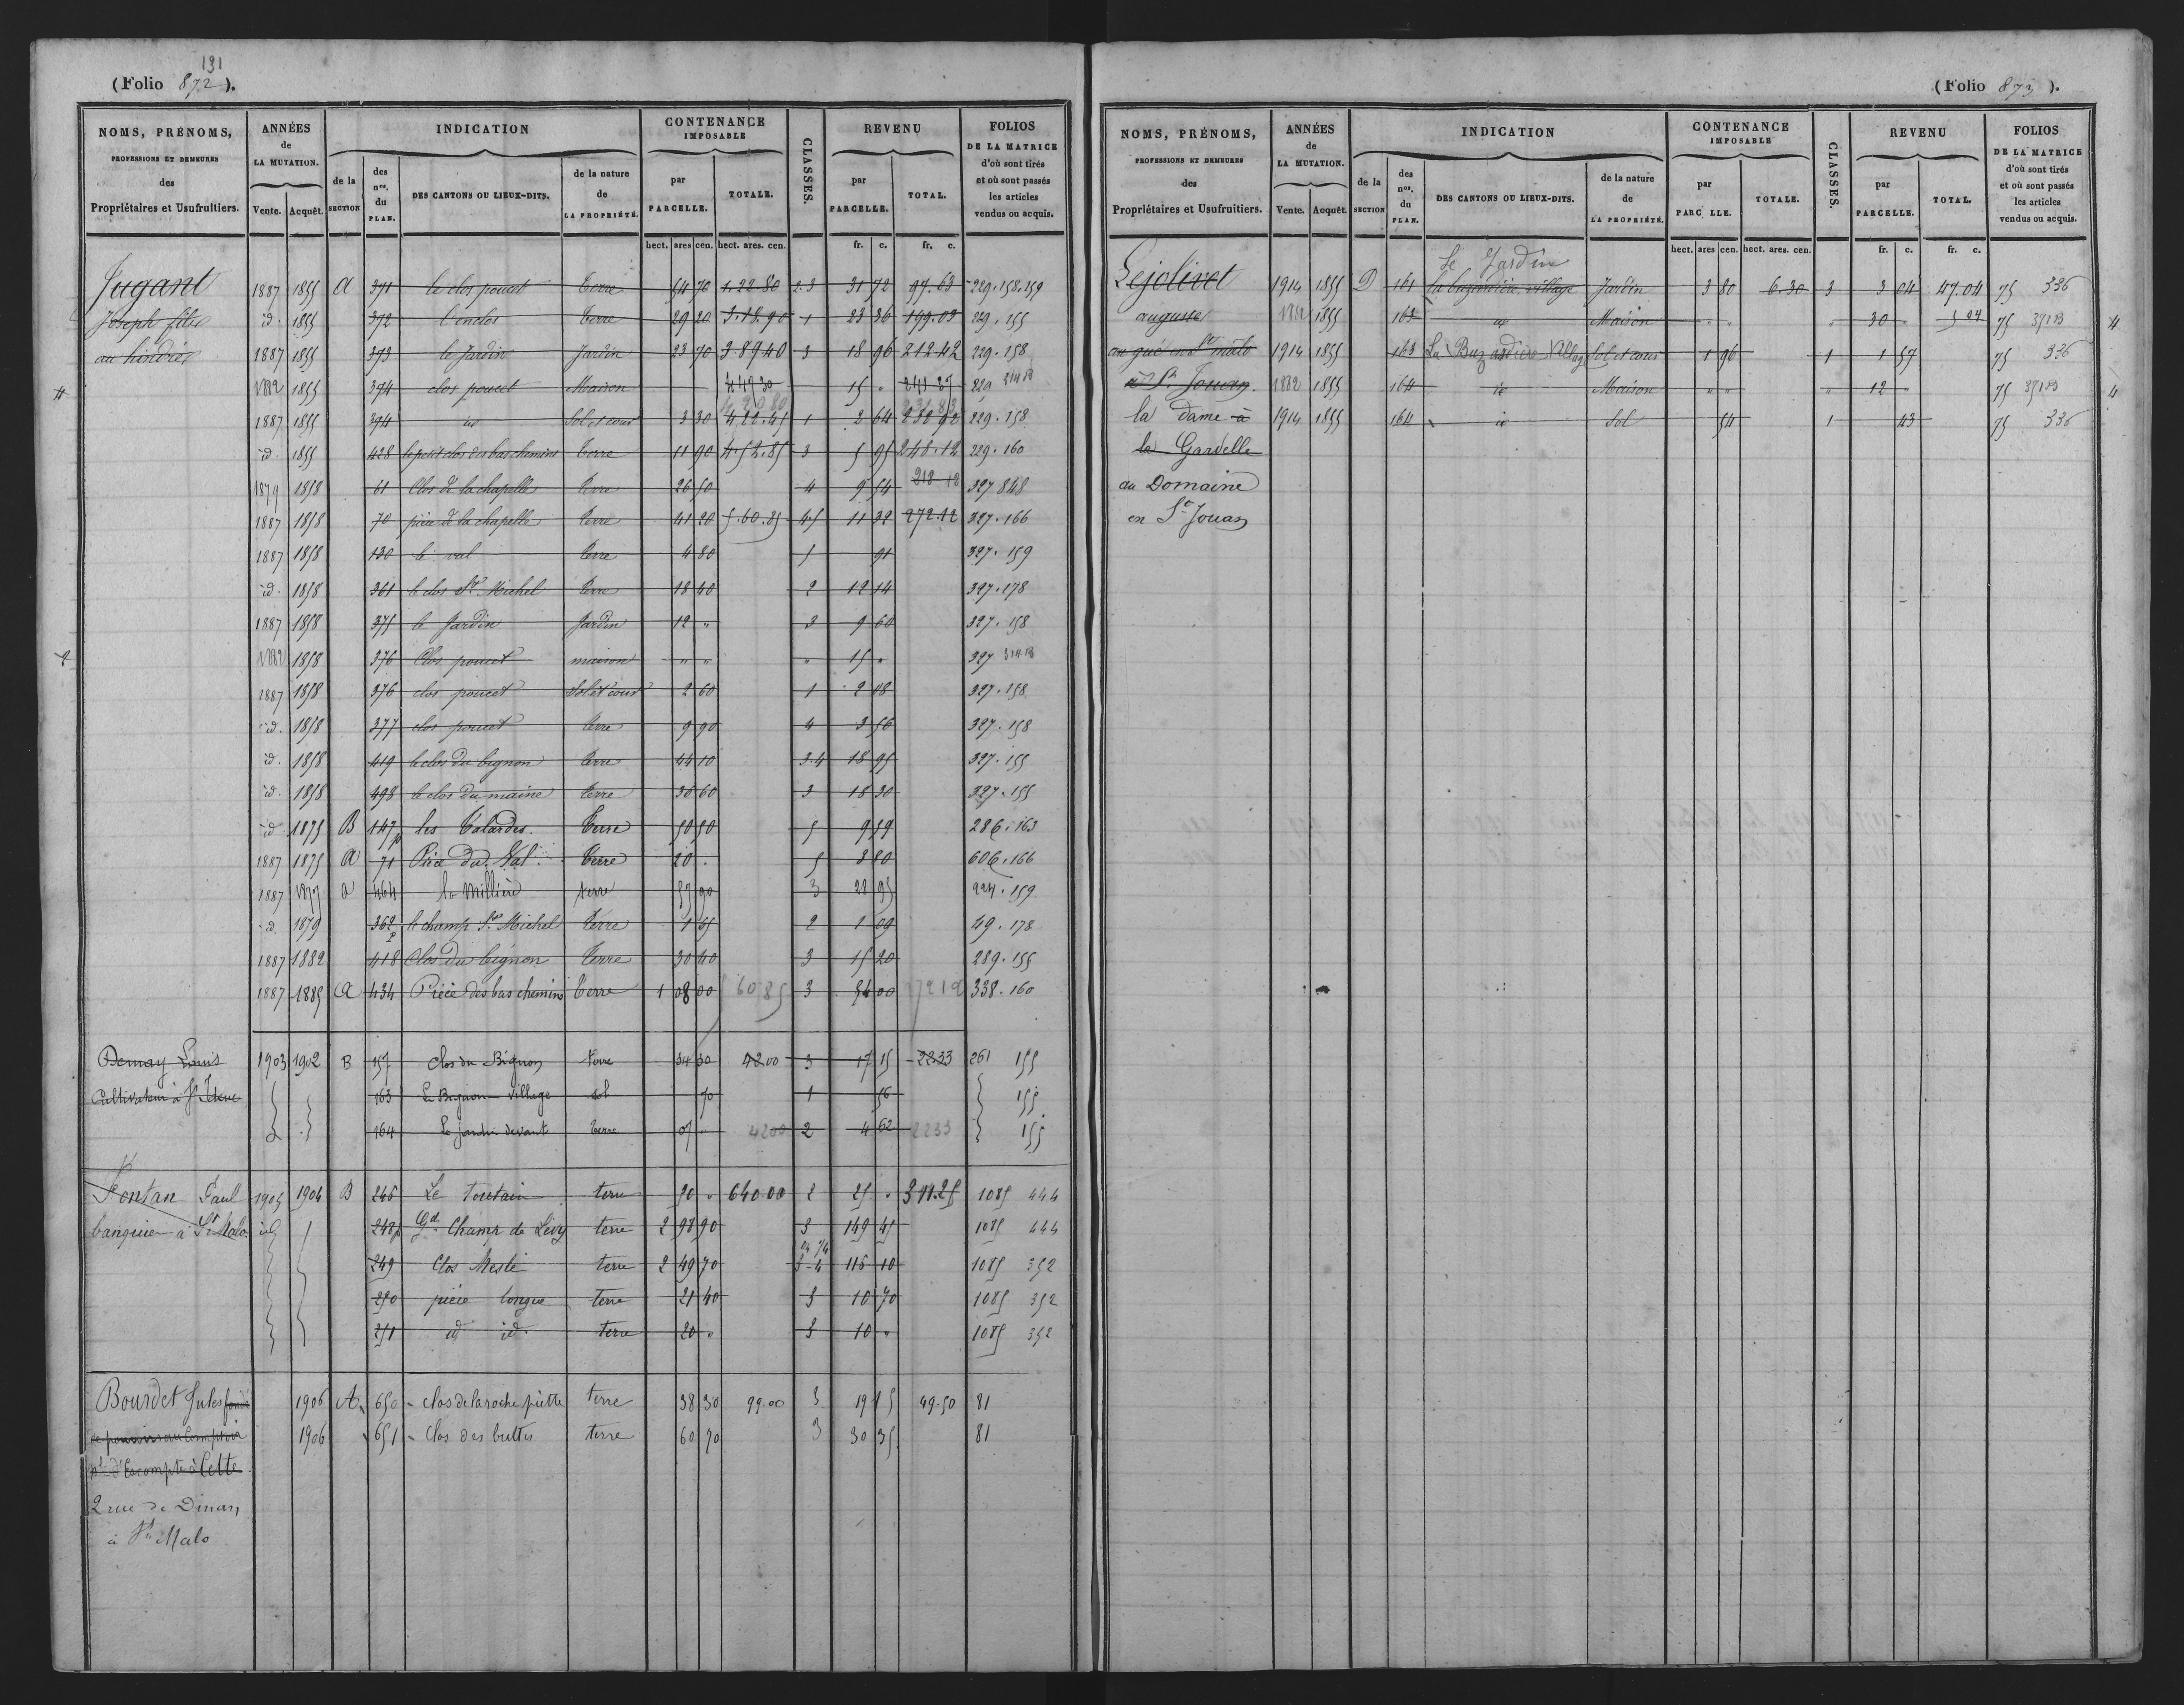 131
(Folio 872).
NOMS, PRÉNOMS, PROFESSIONS ET DEMEURES des Propriétaires et Usufruitiers. ANNÉES de LA MUTATION. Vente. Acquêt. INDICATION de la SECTION des nos. du PLAN. DES CANTONS OU LIEUX-DITS. de la nature de LA PROPRIÉTÉ. CONTENANCE IMPOSABLE par PARCELLE. TOTALE. CLASSES. REVENU par PARCELLE. TOTAL. FOLIOS DE LA MATRICE d'où sont tirés et où sont passés les articles vendus ou acquis.
hect. ares cen. hect. ares. cen. fr. c. fr. c.
Jugant 1887 1855 A 371 le clos poucet Terre 54 70 1.22.80 2.3 31 72 97.63 229.158.159
Joseph fils id. 1855 372 l'enclos Terre 29 20 3.18.90 1 23 36 199.03 229.155
au hindré 1887 1855 373 le Jardin Jardin 23 70 3 89 40 3 18 96 212.42 229.158
1882 1855 374 clos poucet Maison 4 49 30 15 " 241 37 229
1887 1855 374 id Sol et cour 3 30 4.22.45 1 2 64 232 92 229.158
id. 1855 428 le petit clos des bas chemins Terre 11 90 4.52.85 3 5 95 248.12 229.160
1879 1858 61 Clos de la chapelle Terre 26 50 4 9 54 218 12 327 848
1887 1858 70 pièce de la chapelle Terre 41 20 5.60.85 4.5 11 32 272.12 327.166
1887 1858 130 le val Terre 4 80 5 91 327.159
id. 1858 361 le clos St Michel Terre 18 40 2 12 14 327.178
1887 1858 375 le Jardin Jardin 12 " 3 9 60 327.158
1882 1858 376 Clos poucet maison " " " 15 " 327
1887 1858 376 clos poucet Sol et cour 2 60 1 2 08 327.158
id. 1858 377 clos poucet Terre 9 90 4 3 56 327.158
id. 1858 419 le clos du bignon Terre 44 10 3.4 18 95 327.155
id. 1858 498 le clos du maine Terre 36 60 3 18 30 327.155
id 1875 B 147p les Talardes. Terre 50 50 5 9 59 286.163
1887 1875 A 71 Pièce du Val Terre 20 . 5 3 80 606.166
1887 1877 a 464 la Millière terre 55 90 3 28 95 224.159
id 1879 362 p le champ St Michel Terre 1 65 2 1 09 49.178
1887 1882 418 Clos du bignon Terre 30 40 3 15 20 289.155
1887 1885 A 434 Pièce des bas chemins Terre 1 08 00 5 60 85 3 54 00 272 12 338.160
Demay Louis 1903 1902 B 157 Clos du Bignon Terre 34 30 42 00 3 17 15 22.33 261 155
Cultivateur à St 163 Le Bignon village sol 70 1 56 155
164 Le Jardin devant terre 07 " 4200 2 4 62 2233 155
Fontan Paul 1905 1904 B 246 Le Toutain terre 50 " 640 00 2 25 " 311.25 1085 444
banquier à St Malo. id 248p Gd Champ de Livy terre 2 98 90 3 149 45 1085 444
249 Clos Meslé terre 2 49 70 3-4 116 10 1085 352
250 pièce longue terre 21 40 3 10 70 1085 352
251 id id. terre 20 " 3 10 " 1085 352
Bourdet Jules fondé 1906 A 650 clos de la roche piètte terre 38 30 99.00 3 19 15 49.50 81
de pouvoirs au Comptoir 1906 651 Clos des buttes terre 60 70 3 30 35 81
nl d'Escompte à Cette
2 rue de Dinan,
à St Malo
(Folio 873).
NOMS, PRÉNOMS, PROFESSIONS ET DEMEURES des Propriétaires et Usufruitiers. ANNÉES de LA MUTATION. Vente. Acquêt. INDICATION de la SECTION des nos. du PLAN. DES CANTONS OU LIEUX-DITS. de la nature de LA PROPRIÉTÉ. CONTENANCE IMPOSABLE par PARC LLE. TOTALE. CLASSES. REVENU par PARCELLE. TOTAL. FOLIOS DE LA MATRICE d'où sont tirés et où sont passés les articles vendus ou acquis.
hect. ares cen. hect. ares. cen. fr. c. fr. c.
Le Jardin
Lejolivet 1914 1855 D 161 la buzardière village Jardin 3 80 6.30 3 3 04 47.04 75 336
auguste 1882 1855 163 id Maison " " " 30 " 5 04 75 371 B 4
au gué en St malo 1914 1855 163 La Buzardière Village Sol et cour 1 96 1 1 57 75 336
à St Jouan. 1882 1855 164 id Maison " " " 12 " 75 371 B 4
la Dame à 1914 1855 164 id Sol 54 1 43 75 336
la Gardelle
au Domaine
en St Jouan